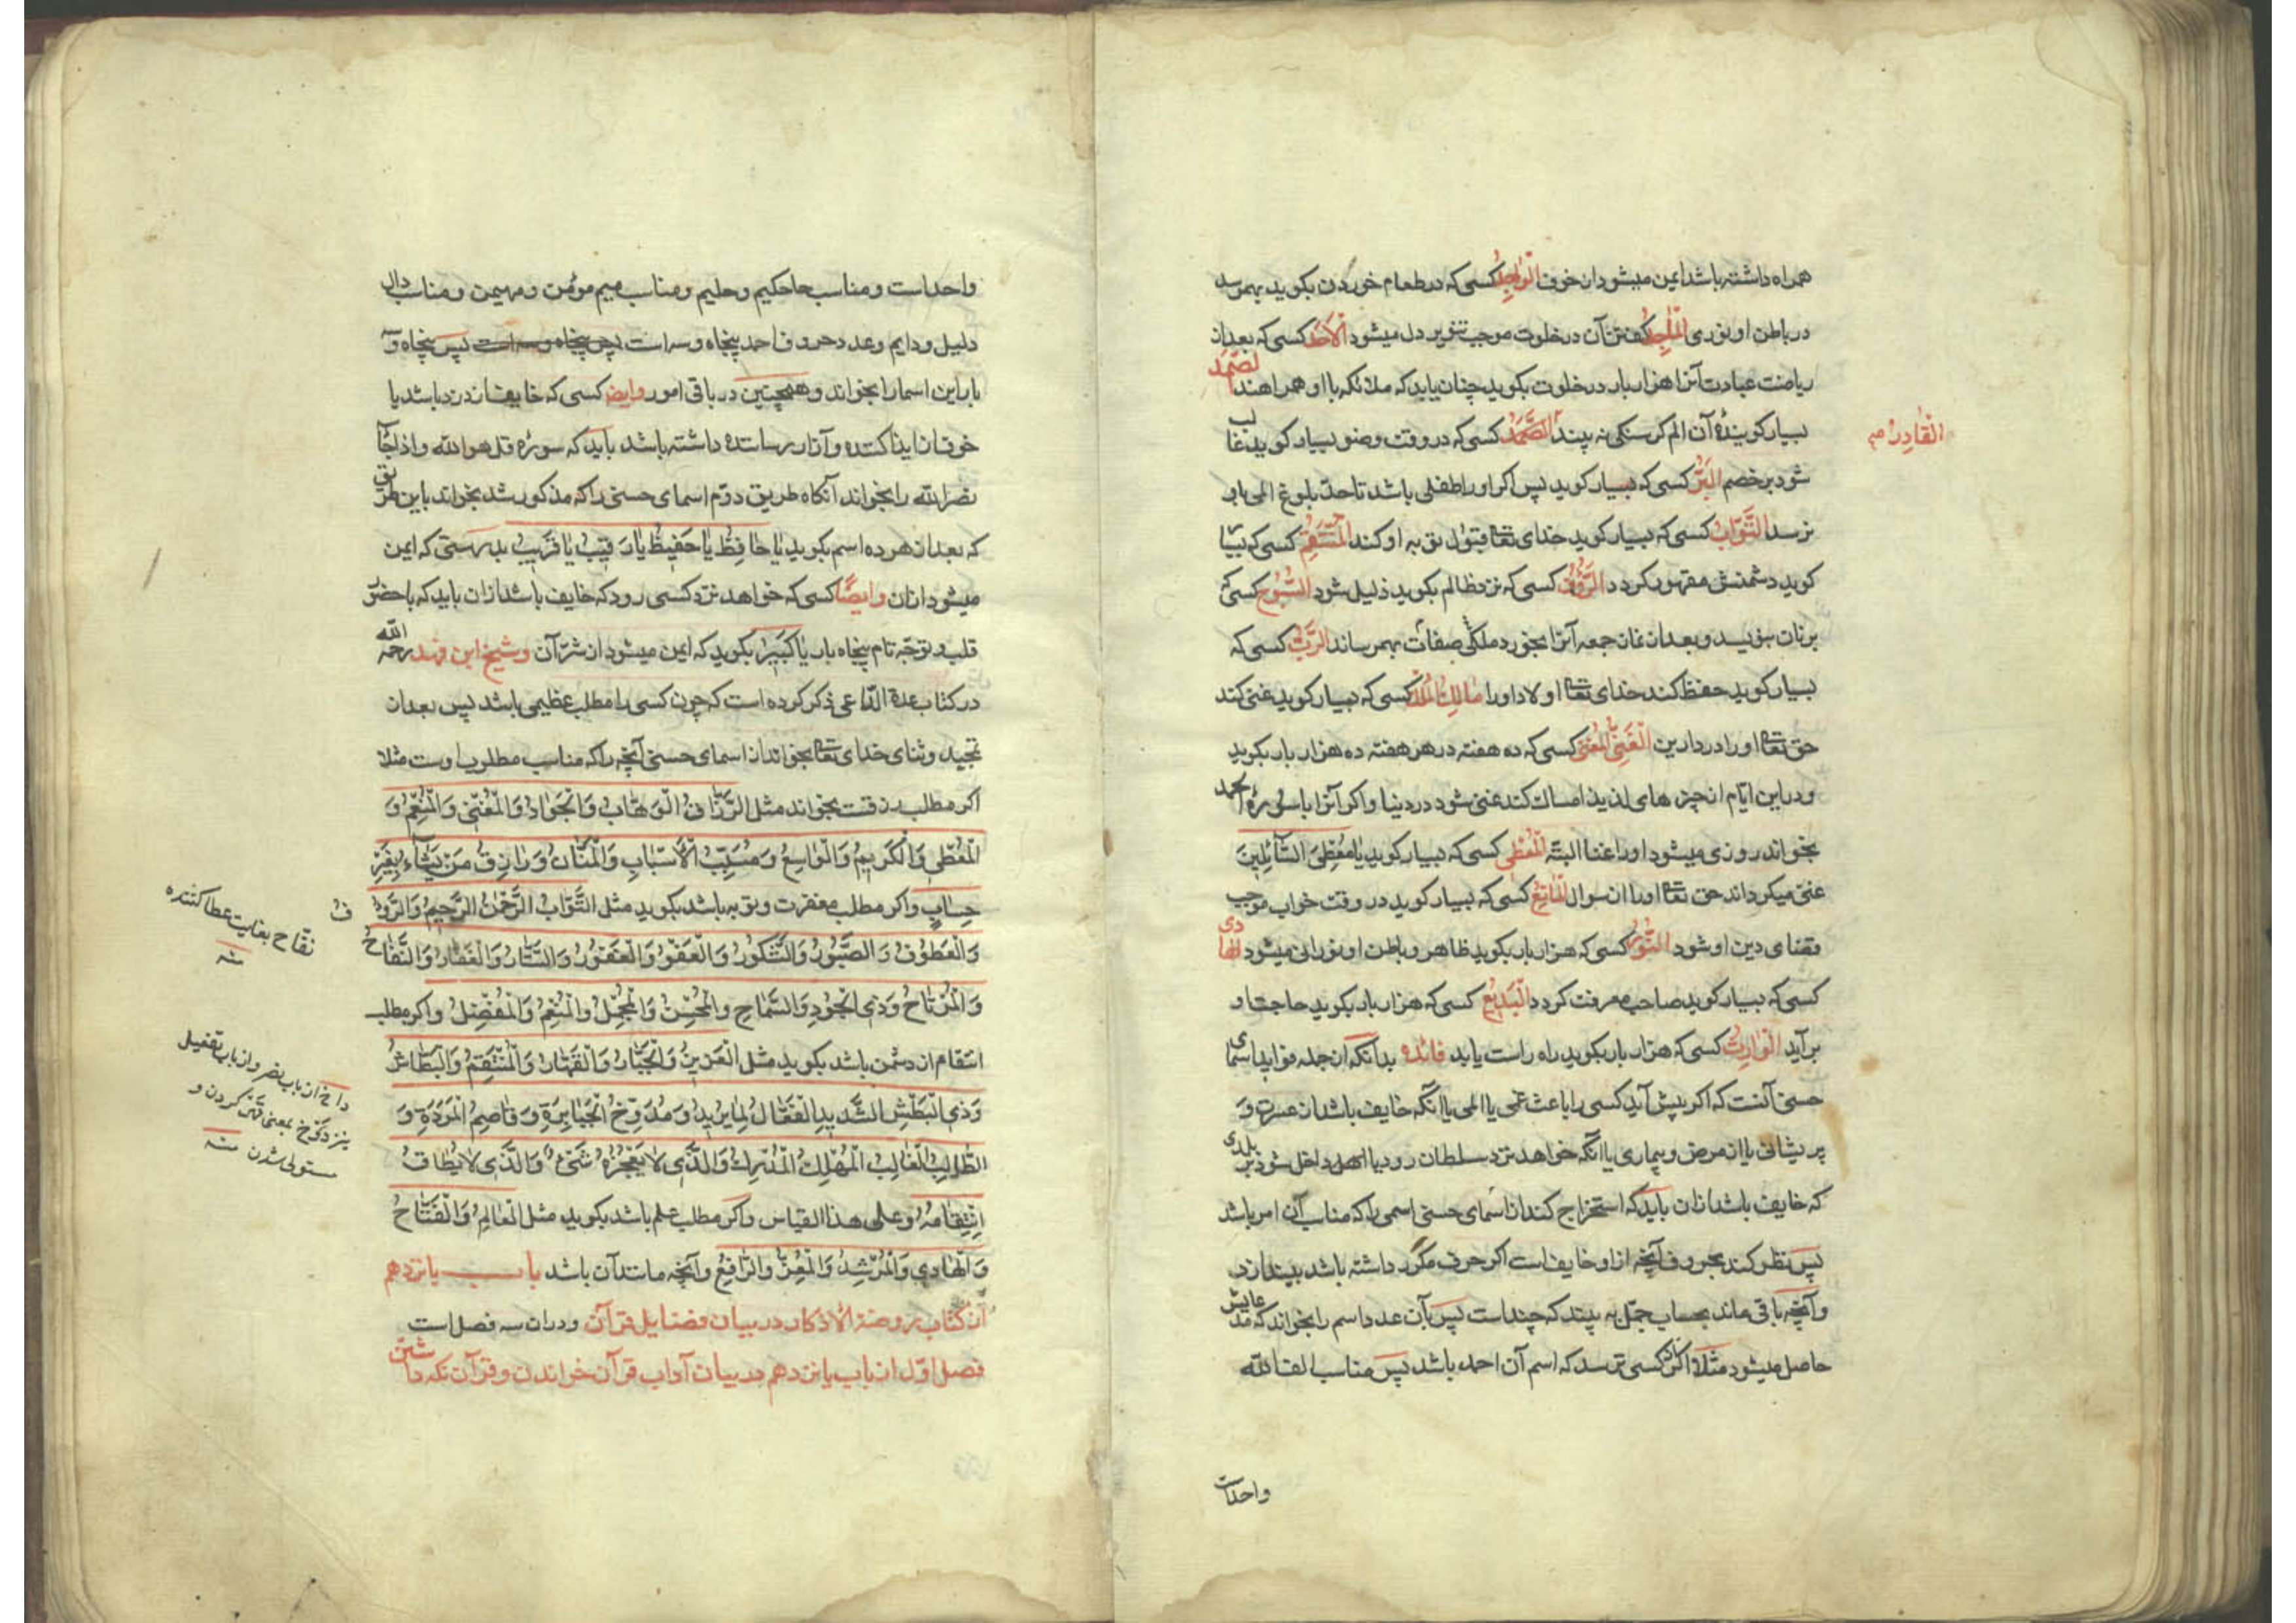 همراه داشته باشد ایمن میشود از خوف الواجد کسی که در طعام خوردن بکوید بهمرسد
در باطن او نوری الماجد کفتن آن در خلوت موجب تنویر دل میشود الاحد کسی که بعد از
ریاضت عبادت آنرا هزار بار در خلوت بکوید چنان یابد که ملائکه با او همراهند الصمد
بسیار کویندهٔ آن الم کرسنکی نه بیند الصَّمَدُ کسی که در وقت وضو بسیار کوید غالب
القادر صح
شود بر خصم البَرّ کسی که بسیار کوید پس اکر او را طفلی باشد تا حدّ بلوغ المی باو
نرسد التَّوّابُ کسی که بسیار کوید خدای تعالی قبول توبه او کند المُنتَقِمُ کسی که بسیار
کوید دشمنش مقهور کردد الرَّؤُفُ کسی که نزد ظالم بکوید ذلیل شود السُّبّوحُ کسی که
بر نان بنویسد و بعد از نماز جمعه آنرا بخورد ملکی صفات بهمرساند الرَّبُّ کسی که
بسیار کوید حفظ کند خدای تعالی اولاد او را مالِکُ المُلک کسی که بسیار کوید غنی کند
حق تعالی او را در دارین الغَنِیُّ المُغنی کسی که ده هفته در هر هفته ده هزار بار بکوید
و در این ایّام از چیز های لذیذ امساک کند غنی شود در دنیا و اکر آنرا با سوره الحمد
بخواند روزی میشود او را غنا البتّه المُعطی کسی که بسیار کوید یا مُعطِیَ السّآئِلینَ
غنی میکرداند حق تعالی او را از سوال المانِعُ کسی که بسیار کوید در وقت خواب موجب
قضای دین او شود النُّورُ کسی که هزار بار بکوید ظاهر و باطن او نورانی میشود الهادی
کسی که بسیار کوید صاحب معرفت کردد البَدیعُ کسی که هزار بار بکوید حاجت او
برآید الوارِثُ کسی که هزار بار بکوید راه راست یابد فائده بدانکه از جمله فواید اسمای
حسنی آنست که اکر پیش آید کسی را باعث غمی یا المی یا آنکه خایف باشد از عسرت و
پریشانی یا از مرض و بیماری یا آنکه خواهد نزد سلطان رود یا اهل داخل شود بر بلدی
که خایف باشد از آن باید که استخراج کند از اسمای حسنی اسمی را که مناسب آن امر باشد
پس نظر کند بحروف آنچه از او خایف است اکر حرف مکرّر داشته باشد بیندازد
و آنچه باقی ماند بحساب جمّل به بیند که چند است پس بآن عدد اسم را بخواند که مدعایش
حاصل میشود مثلا اکر از کسی ترسد که اسم آن احمد باشد پس مناسب الف الله
واحد است
واحد است و مناسب حا حکیم و حلیم و مناسب میم مومن و مهیمن و مناسب دال
دلیل و دایم و عدد حروف احمد پنجاه و سه است پس پنجاه و سه
بار این اسما را بخواند و همچنین در باقی امور وایضا کسی که خایف از درد باشد یا
خوف از ایذا کننده و آزار رساننده داشته باشد باید که سوره قل هو الله و اذا جآء
نصر الله را بخواند آنکاه طریق دوّم اسمای حسنی را که مذکور شد بخواند باین طریق
که بعد از هر ده اسم بکوید یا حافِظُ یا حَفیظُ یا رَقیبُ یا قَریبُ بدرستی که ایمن
میشود از آن وایضًا کسی که خواهد نزد کسی رود که خایف باشد از آن باید که با حضور
قلب و توجّه تام پنجاه بار یا کَبیرُ بکوید که ایمن میشود از شرّ آن و شیخ ابن فهد رحمه الله
در کتاب عدة الدّاعی ذکر کرده است که چون کسی را مطلب عظیمی باشد پس بعد از
تمجید و ثنای خدای تعالی بخواند از اسمای حسنی آنچه را که مناسب مطلوب اوست مثلا
اکر مطلب رزقست بخواند مثل الرَّزّاقُ الوَهّابُ وَالجَوادُ وَالمُغنی وَالمُنعِمُ وَ
المُعطی وَالکَریمُ وَالواسِعُ وَمُسَبِّبُ الاَسبابِ وَالمَنّانُ وَرازِقُ مَن یَشآءُ بِغَیرِ
حِسابٍ و اکر مطلب مغفرت و توبه باشد بکوید مثل التَّوّابُ الرَّحمنُ الرَّحیمُ وَالرَّؤُفُ
وَالعَطُوفُ وَالصَّبُورُ وَالشَّکُورُ وَالعَفُوُّ وَالغَفُورُ وَالسَّتّارُ وَالغَفّارُ وَالنَّفّاحُ
نفّاح بغایت عطا کننده
منه
وَالمُرتاحُ وَذِی الجُودِ وَالسَّماحِ وَالمُحسِنُ وَالمُجمِلُ وَالمُنعِمُ وَالمُفضِلُ و اکر مطلب
انتقام از دشمن باشد بکوید مثل العَزیزُ وَالجَبّارُ وَالقَهّارُ وَالمُنتَقِمُ وَالبَطّاشُ
وَذِی البَطشِ الشَّدیدِ الفَعّالُ لِما یُریدُ وَمُدَوِّخُ الجَبابِرَةِ وَقاصِمُ المَرَدَةِ وَ
داخ از باب نصر و از باب تفعیل
نیز دوّخ بمعنی قهر کردن و
مستولی شدن منه
الطّالِبُ الغالِبُ المُهلِکُ المُدرِکُ وَالَّذی لا یُعجِزُهُ شَیءٌ وَالَّذی لا یُطاقُ
اِنتِقامُهُ و علی هذا القیاس و اکر مطلب علم باشد بکوید مثل العالِمُ وَالفَتّاحُ
وَالهادی وَالمُرشِدُ وَالمُعِزُّ وَالرّافِعُ و آنچه مانند آن باشد باب یانزدهم
از کتاب روضة الاذکار در بیان فضایل قرآن و در ان سه فصل است
فصل اوّل از باب یانزدهم در بیان آداب قرآن خواندن و قرآن نکه داشتن